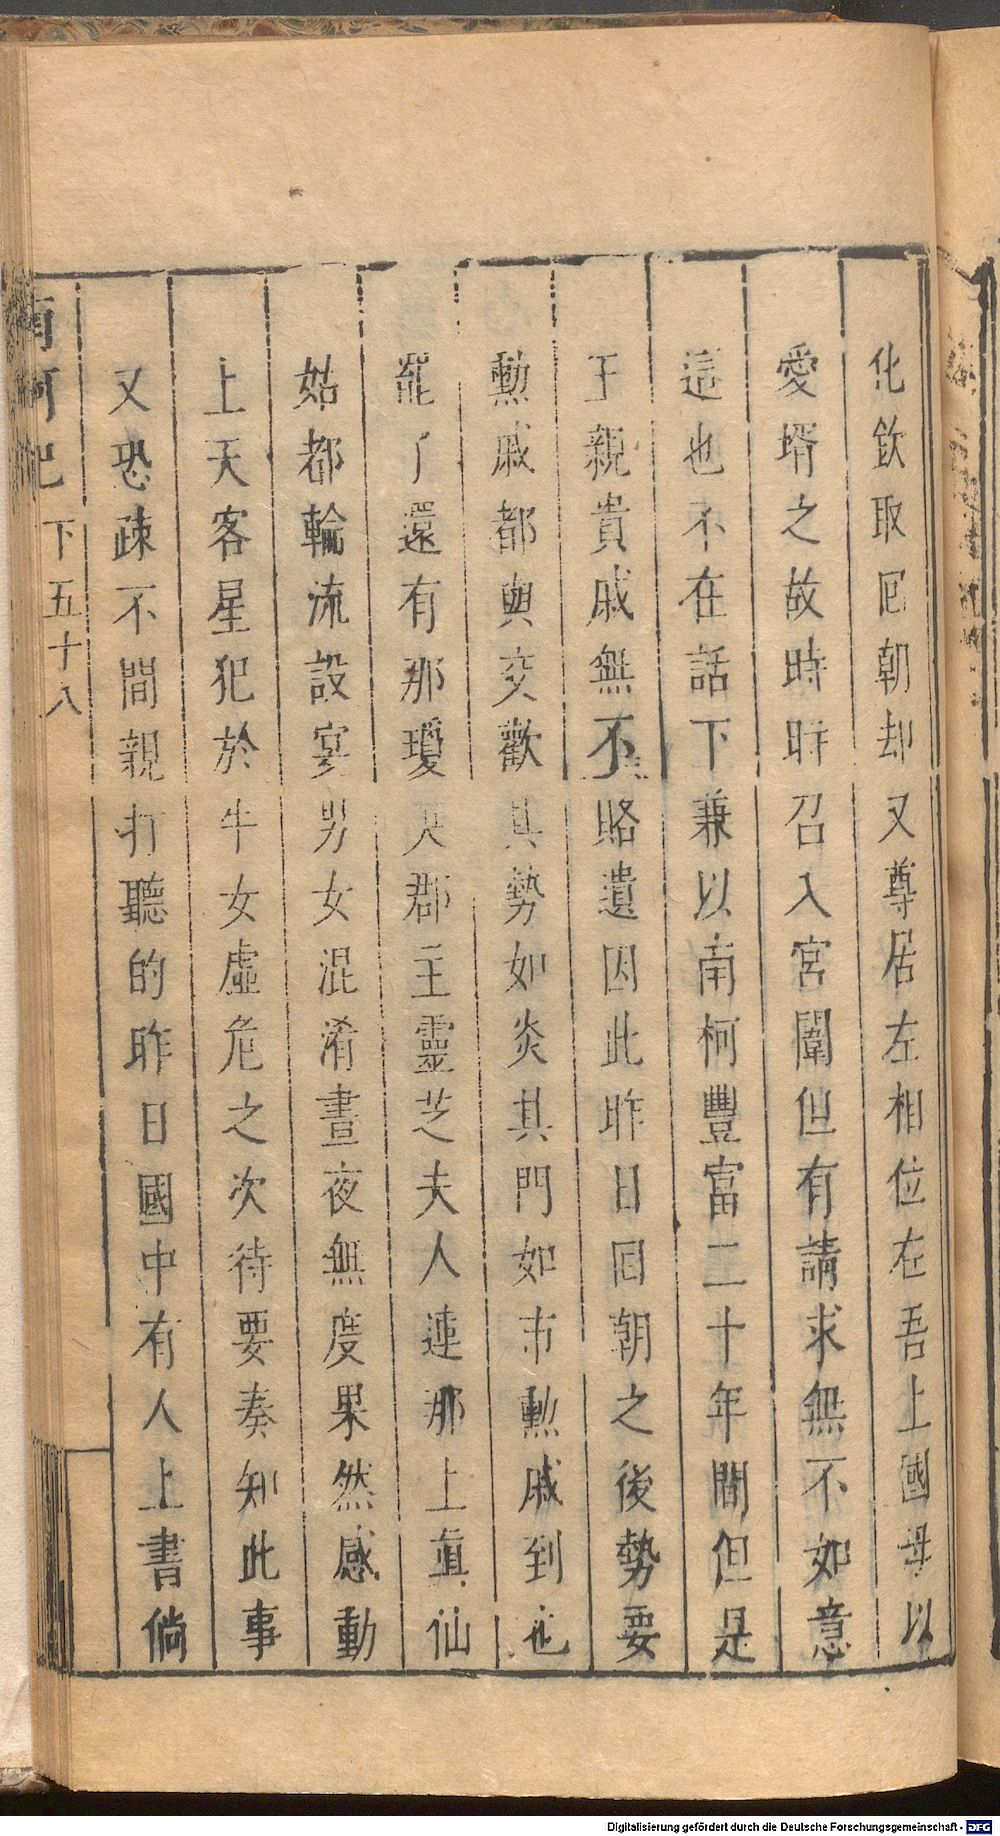 化欽取囘朝却又尊居左相位在吾上國母以
愛壻之故時時召入宮闈但有請求無不如意
這也不在話下兼以南柯豐富二十年間但是
王親貴戚無不賂遺因此昨日囘朝之後勢要
勲戚都與交歡其勢如炎其門如市勲戚到也
罷了還有那瓊英郡主靈芝夫人連那上眞仙
姑都輪流設宴男女混淆晝夜無度果然感動
上天客星犯於牛女虛危之次待要奏知此事
又恐疎不間親打聽的昨日國中有人上書倘
南柯記 下 五十八
Digitalisierung gefördert durch die Deutsche Forschungsgemeinschaft - DFG